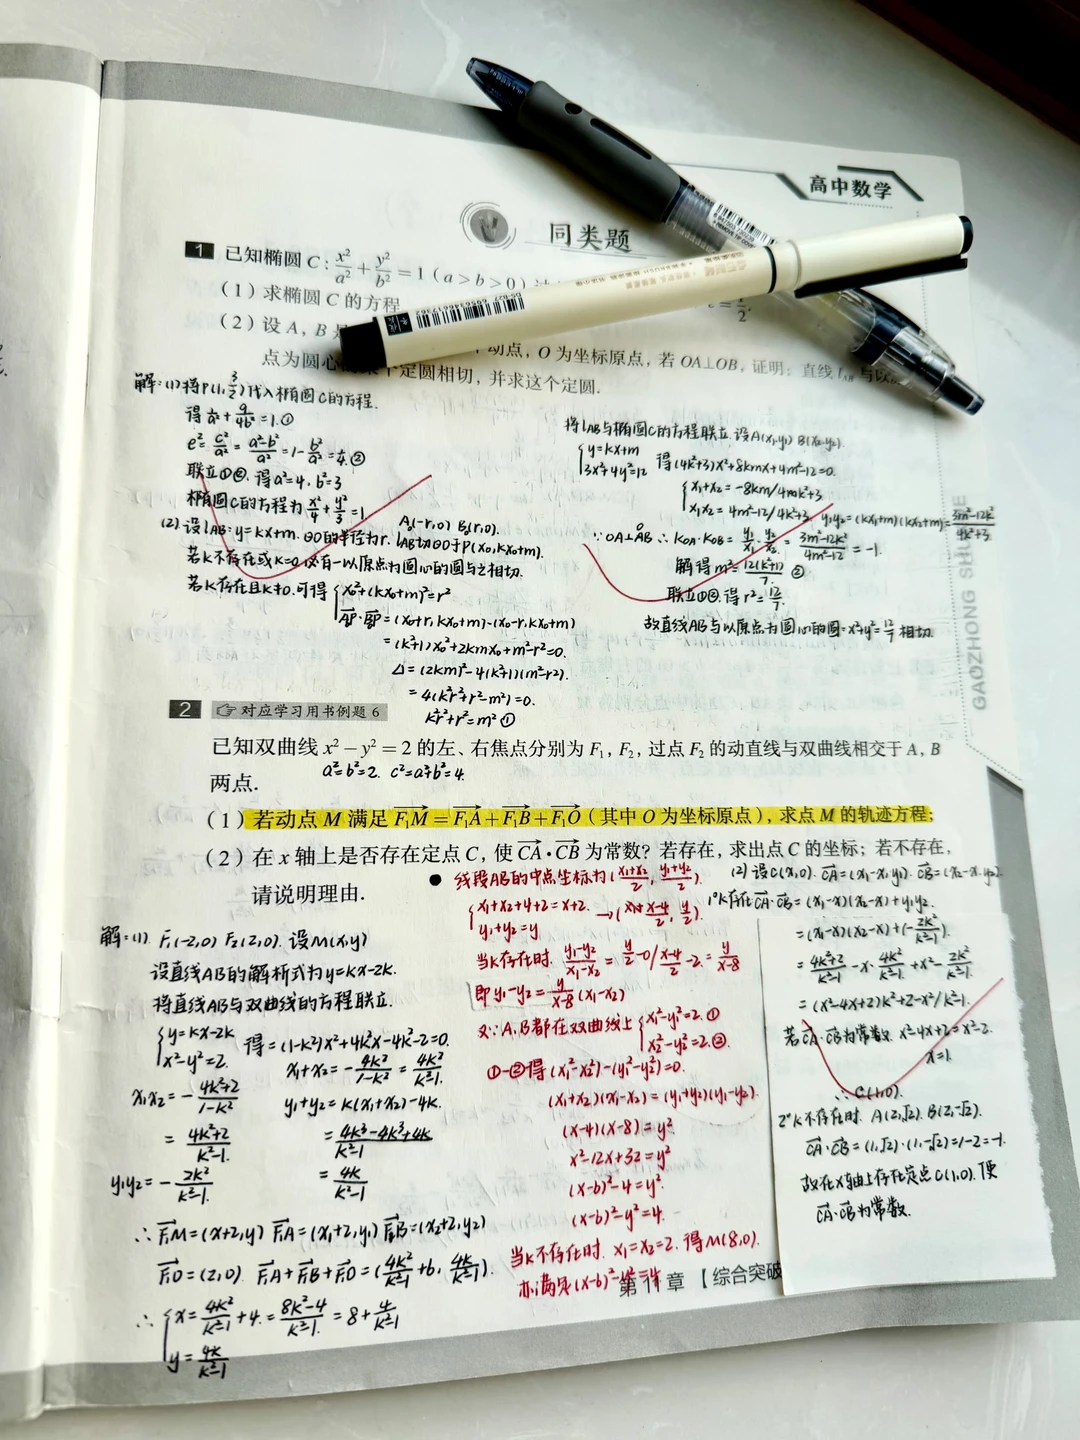 高中数学
同类题
1 已知椭圆 C : x²/a² + y²/b² = 1 ( a > b > 0 )
(1) 求椭圆 C 的方程
(2) 设 A, B
动点, O 为坐标原点, 若 OA⊥OB, 证明: 直线
点为圆心 定圆相切, 并求这个定圆.
解:(1) 将P(1, 3/2)代入椭圆C的方程.
得 1/a² + 9/4b² = 1.①
e² = c²/a² = a²-b²/a² = 1 - b²/a² = 1/4.②
联立①②. 得a²=4, b²=3
椭圆C的方程为 x²/4 + y²/3 = 1
(2) 设lAB: y=kx+m. ⊙O的半径为r. lAB切⊙O于P(x₀, kx₀+m).
A₀(-r,0) B₀(r,0).
若k不存在或k=0. 必有一以原点为圆心的圆与之相切.
若k存在且k≠0. 可得 { x₀²+(kx₀+m)²=r²
AP·BP = (x₀+r, kx₀+m)·(x₀-r, kx₀+m)
= (k²+1)x₀²+2kmx₀+m²-r²=0.
Δ = (2km)²-4(k²+1)(m²-r²).
= 4(k²r²+r²-m²)=0.
k²r²+r²=m² ①
将lAB与椭圆C的方程联立. 设A(x₁,y₁) B(x₂,y₂).
{ y=kx+m
3x²+4y²=12 得(4k²+3)x²+8kmx+4m²-12=0.
{ x₁+x₂=-8km/4k²+3
x₁x₂=4m²-12/4k²+3. y₁y₂=(kx₁+m)(kx₂+m)= 3m²-12k²/4k²+3.
∵OA⊥OB ∴KOA·KOB = y₁/x₁·y₂/x₂ = 3m²-12k²/4m²-12 = -1.
解得m²= 12(k²+1)/7. ②
联立①②. 得r²= 12/7.
故直线AB与以原点为圆心的圆: x²+y²= 12/7 相切.
GAOZHONG SHU
2 对应学习用书例题 6
已知双曲线 x² − y² = 2 的左、右焦点分别为 F₁, F₂, 过点 F₂ 的动直线与双曲线相交于 A, B
两点.
a²=b²=2. c²=a²+b²=4.
(1) 若动点 M 满足 F₁M = F₁A + F₁B + F₁O ( 其中 O 为坐标原点 ), 求点 M 的轨迹方程;
(2) 在 x 轴上是否存在定点 C, 使 CA·CB 为常数? 若存在, 求出点 C 的坐标; 若不存在,
请说明理由.
解:(1). F₁(-2,0) F₂(2,0). 设M(x,y)
设直线AB的解析式为y=kx-2k.
将直线AB与双曲线的方程联立.
{ y=kx-2k
x²-y²=2. 得:(1-k²)x²+4k²x-4k²-2=0.
x₁+x₂ = - 4k²/1-k² = 4k²/k²-1.
x₁x₂ = - 4k²+2/1-k²
= 4k²+2/k²-1.
y₁+y₂=k(x₁+x₂)-4k.
= 4k³-4k³+4k/k²-1
= 4k/k²-1
y₁y₂ = - 2k²/k²-1.
∴F₁M=(x+2,y) F₁A=(x₁+2,y₁) F₁B=(x₂+2,y₂)
F₁O=(2,0). F₁A+F₁B+F₁O=( 4k²/k²-1 +6, 4k/k²-1 ).
∴ { x= 4k²/k²-1 +4. = 8k²-4/k²-1. = 8+ 4/k²-1
y= 4k/k²-1
● 线段AB的中点坐标为( x₁+x₂/2, y₁+y₂/2 ).
{ x₁+x₂+4+2=x+2.
y₁+y₂=y → ( x-4/2, y/2 ).
当k存在时. y₁-y₂/x₁-x₂ = y/2-0 / x-4/2-2. = y/x-8
即y₁-y₂= y/x-8 (x₁-x₂)
又∵A,B都在双曲线上 { x₁²-y₁²=2.①
x₂²-y₂²=2.②.
①-②得(x₁²-x₂²)-(y₁²-y₂²)=0.
(x₁+x₂)(x₁-x₂)=(y₁+y₂)(y₁-y₂).
(x-4)(x-8)=y².
x²-12x+32=y²
(x-6)²-4=y².
(x-6)²-y²=4.
当k不存在时. x₁=x₂=2. 得M(8,0).
亦满足(x-6)²-y²=4
(2) 设C(x,0). CA=(x₁-x,y₁). CB=(x₂-x,y₂).
1°k存在CA·CB=(x₁-x)(x₂-x)+y₁y₂.
=(x₁-x)(x₂-x)+(- 2k²/k²-1).
= 4k²+2/k²-1 -x· 4k²/k²-1. +x²- 2k²/k²-1.
=(x²-4x+2)k²+2-x²/k²-1.
若CA·CB为常数. x²-4x+2=x²-2.
x=1.
∴C(1,0).
2°k不存在时. A(2,√2). B(2,-√2).
CA·CB=(1,√2)·(1,-√2)=1-2=-1.
故在x轴上存在定点C(1,0). 使
CA·CB为常数.
第 11 章 【综合突破